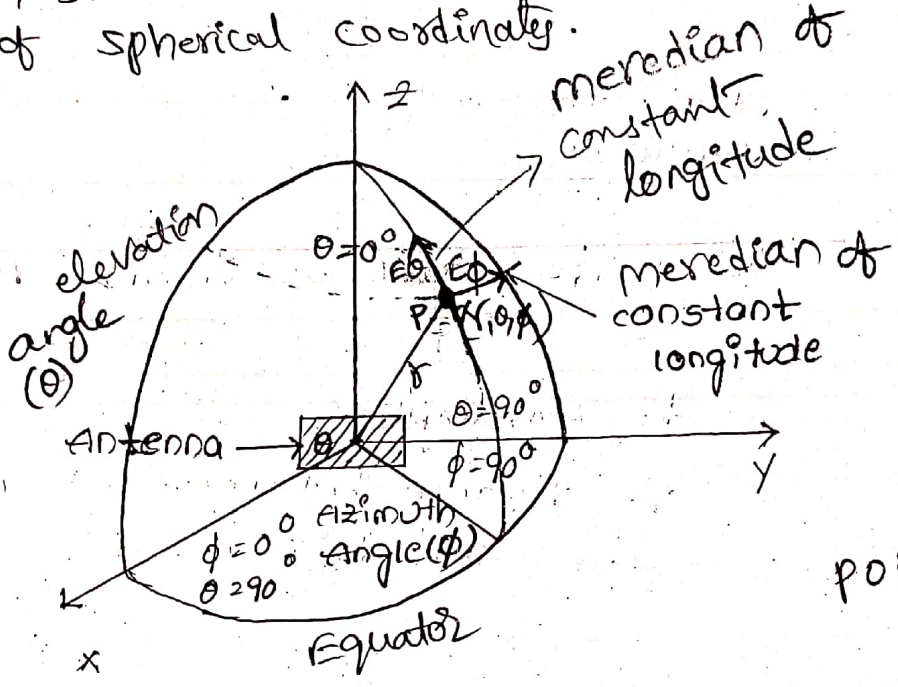 of spherical coordinates.
z
meredian of
constant
longitude
elevation
angle
(θ)
θ=0°
Eθ
Eϕ
meredian of
constant
longitude
P
(r,θ,ϕ)
r
θ=90°
Antenna
θ
ϕ=90°
y
ϕ=0°
Azimuth
θ=90°
Angle(ϕ)
x
Equator
po